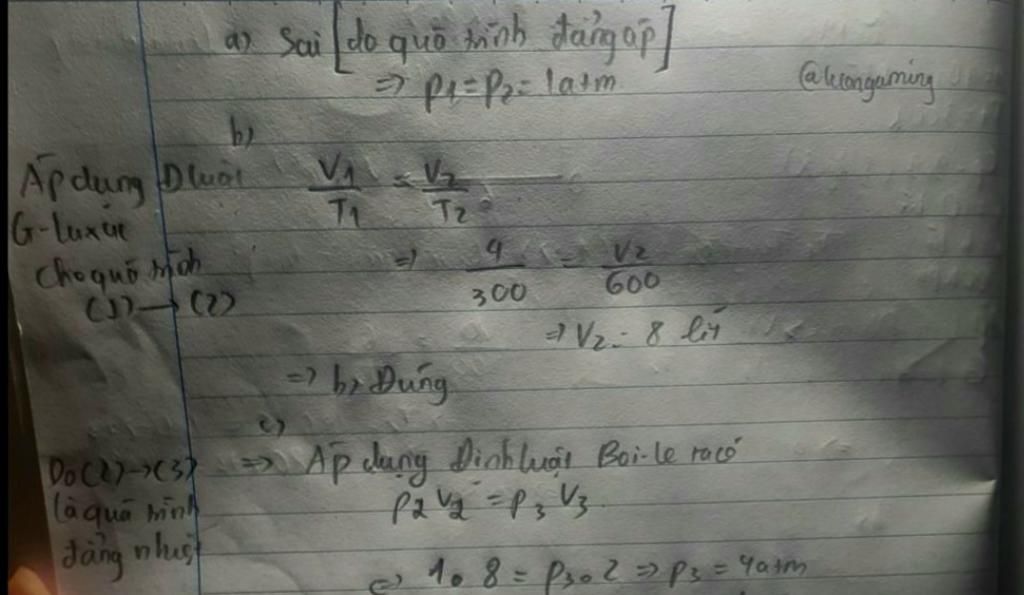 a) Sai [do quá trình đẳng áp]
=> P1 = P2 = 1atm
b)
Áp dụng Đluật
G-luxac
cho quá trình
(1) → (2)
V1/T1 = V2/T2
=> 4/300 = V2/600
=> V2 = 8 lít
=> b, Đúng
c)
Do (2) → (3)
là quá trình
đẳng nhiệt
=> Áp dụng Định luật Boi-le ta có
P2 V2 = P3 V3
<=> 1.8 = P3.2 => P3 = 4atm